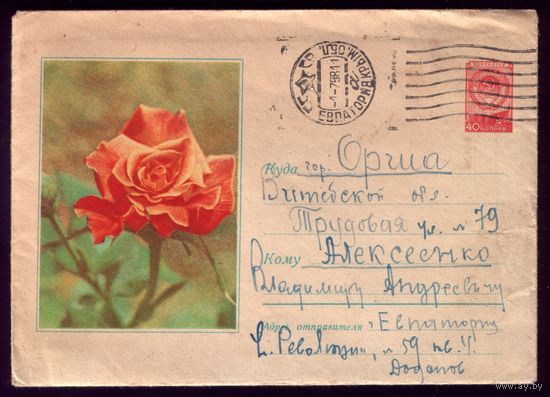 СССР
ЕВПАТОРИЯ КРЫМ. ОБЛ.
ПОЧТА СССР
40 КОПЕЕК
Куда гор. Орша
Витебской обл.
Трудовая ул. № 79
Кому Алексеенко
Владимиру Андреевичу
Адрес отправителя г. Евпатория
ул. Революции, № 59 кв. 4.
www.ay.by